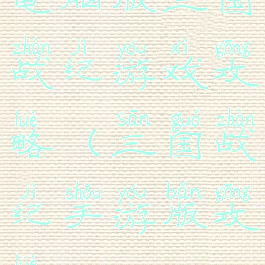 电脑版三国
zhàn jì yóu xì gōng
战纪游戏攻
lüè sān guó zhàn
略（三国战
jì shǒu yóu bǎn gōng
纪手游版攻
lüè